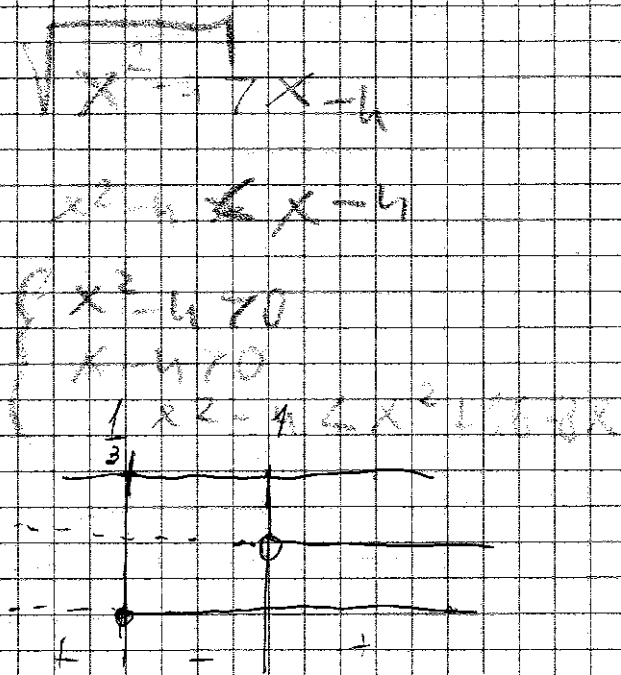 √x² - 7x - 4
x² - 4 < x - 4
{ x² - 4 > 0
x - 4 > 0
x² - 4 < x² + 16 - 8x
1/3 4
+ - +